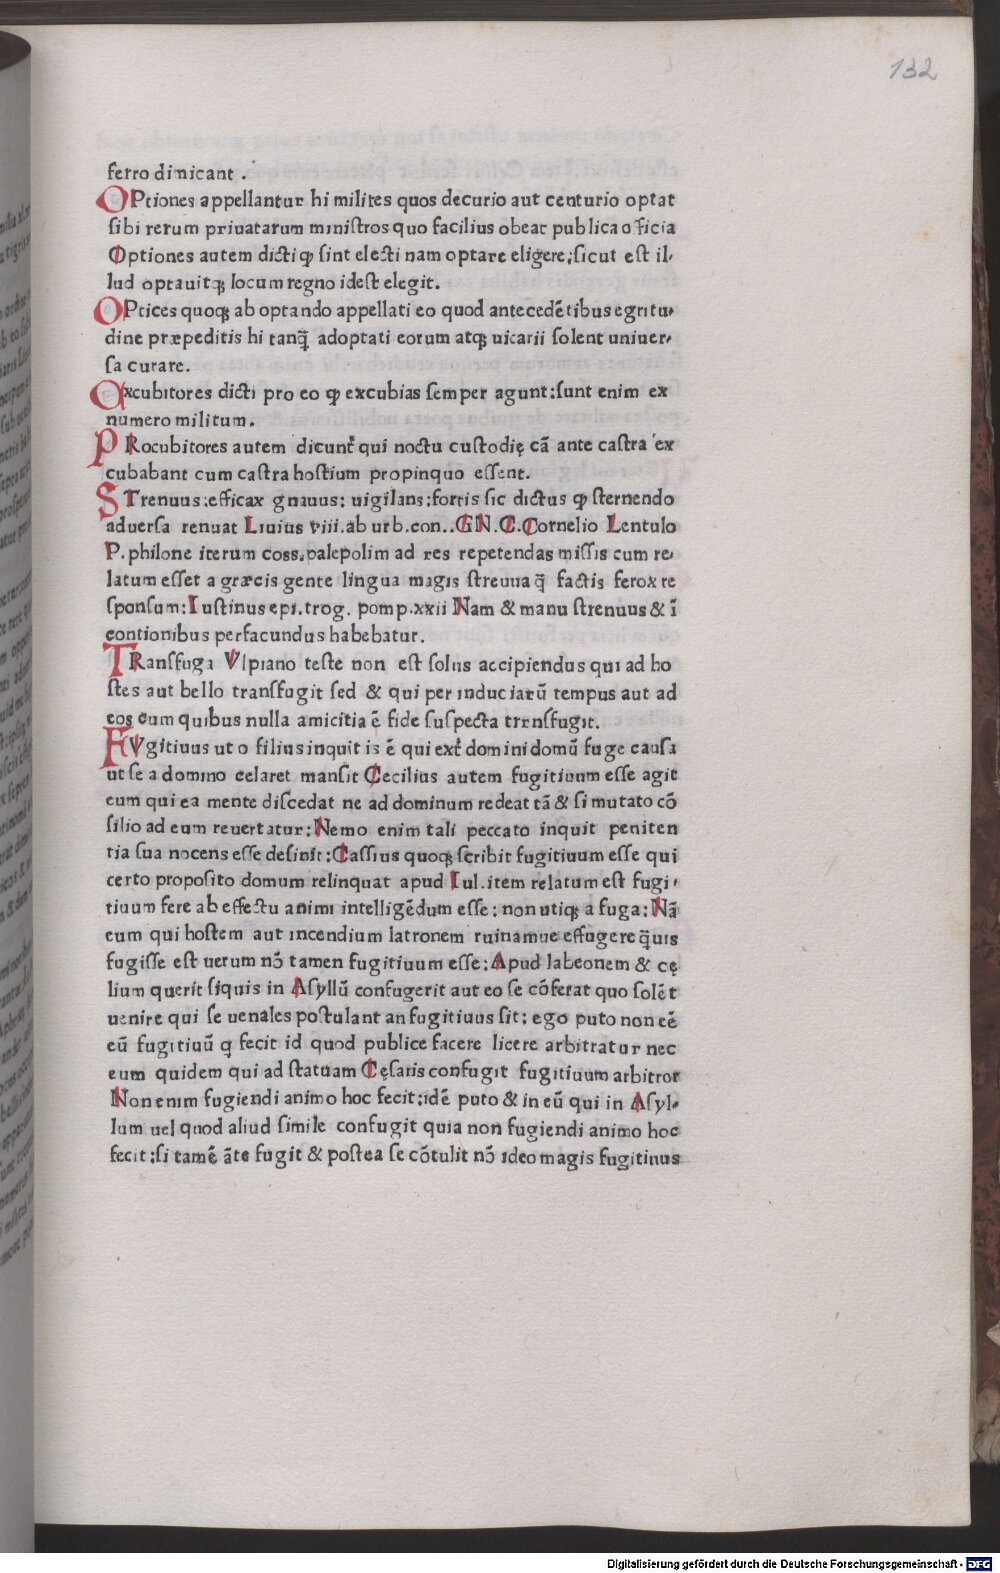 132
ferro dimicant .
OPtiones appellantur hi milites quos decurio aut centurio optat
sibi rerum priuatarum ministros quo facilius obeat publica officia
Optiones autem dicti ꝙ sint electi nam optare eligere;sicut est il⸗
lud optauitqꝫ locum regno idest elegit.
OPtices quoqꝫ ab optando appellati eo quod antecedētibus egritu⸗
dine præpeditis hi tanq̄ adoptati eorum atqꝫ uicarii solent uniuer⸗
sa curare.
Excubitores dicti pro eo ꝙ excubias semper agunt:sunt enim ex
numero militum.
PRocubitores autem dicunt᷑ qui noctu custodię cā ante castra ex
cubabant cum castra hostium propinquo essent.
STrenuus:efficax gnauus: uigilans:fortis sic dictus ꝙ sternendo
aduersa renuat Liuius viii.ab urb.con..GN.C.Cornelio Lentulo
P.philone iterum coss.palepolim ad res repetendas missis cum re⸗
latum esset a græcis gente lingua magis strenua q̄ factis ferox re
sponsum:Iustinus epi.trog. pomp.xxii Nam & manu strenuus & ī
contionibus perfacundus habebatur.
TRansfuga Vlpiano teste non est solus accipiendus qui ad ho
stes aut bello transfugit sed & qui per induciarū tempus aut ad
eos cum quibus nulla amicitia ē fide suspecta trensfugit.
FVgitiuus ut o filius inquit is ē qui ext᷑ domini domū fuge causa
ut se a domino celaret mansit Cecilius autem fugitiuum esse agit
eum qui ea mente discedat ne ad dominum redeat tā & si mutato cō
silio ad eum reuertatur:Nemo enim tali peccato inquit peniten
tia sua nocens esse desinit:Cassius quoqꝫ scribit fugitiuum esse qui
certo proposito domum relinquat apud Iul.item relatum est fugi⸗
tiuum fere ab effectu animi intelligēdum esse: non utiqꝫ a fuga:Nā
eum qui hostem aut incendium latronem ruinamue effugere q̄uis
fugisse est uerum nō tamen fugitiuum esse:Apud labeonem & cę
lium querit siquis in Asyllū confugerit aut eo se cōferat quo solēt
uenire qui se uenales postulant an fugitiuus sit: ego puto non eē
eū fugitiuū q fecit id quod publice facere licere arbitratur nec
eum quidem qui ad statuam Cęsaris confugit fugitiuum arbitror
Non enim fugiendi animo hoc fecit:idē puto & in eū qui in Asyl⸗
lum uel quod aliud simile confugit quia non fugiendi animo hoc
fecit:si tamē āte fugit & postea se cōtulit nō ideo magis fugitinus
Digitalisierung gefördert durch die Deutsche Forschungsgemeinschaft - DFG